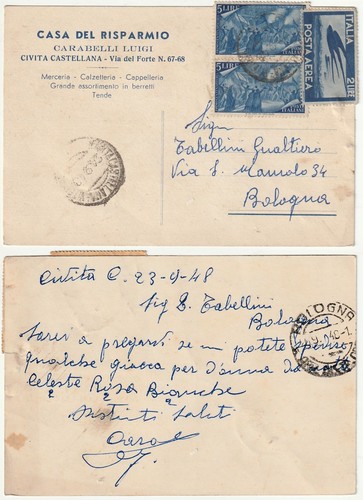 CASA DEL RISPARMIO
CARABELLI LUIGI
CIVITA CASTELLANA - Via del Forte N. 67-68
Merceria - Calzetteria - Cappelleria
Grande assortimento in berretti
Tende
5 LIRE
5 LIRE
ITALIA
POSTA AEREA
2 LIRE
Sign
Tabellini Gualtiero
Via S. Mamolo 34
Bologna
Civita C. 23-9-48
Sig G. Tabellini
Bologna
BOLOGNA
sarei a pregarvi se mi potete
qualche giacca per donna
Celeste Rosa Bianche
2 2 2
Distinti Saluti